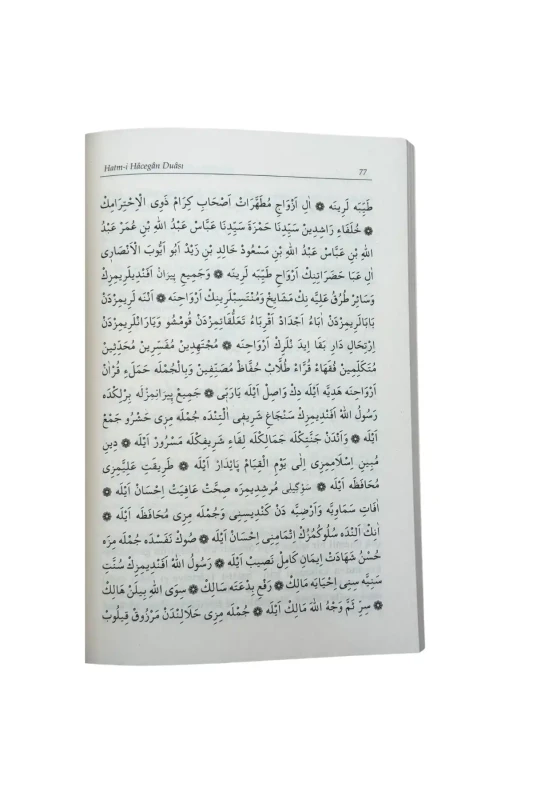 Hatm-i Hâcegân Duâsı 77
طَيِّبَه لَرِينَه ❁ اٰلِ اَزْوَاجِ مُطَهَّرَاتْ اَصْحَابِ كِرَامْ ذَوِى الْاِحْتِرَامِكْ
❁ خُلَفَاءِ رَاشِدِينْ سَيِّدِنَا حَمْزَهْ سَيِّدِنَا عَبَّاسْ عَبْدُ اللهِ بْنِ عُمَرْ عَبْدُ
اللهِ بْنِ عَبَّاسْ عَبْدُ اللهِ بْنِ مَسْعُودْ خَالِدِ بْنِ زَيْدْ اَبُو اَيُّوبَ الْاَنْصَارِى
اٰلِ عَبَا حَضَرَاتِنِكْ اَرْوَاحِ طَيِّبَه لَرِينَه ❁ وَجَمِيعِ پِيرَانْ اَفَنْدِيلَرِيمِزِكْ
وَسَائِرْ طُرُقِ عَلِيَّه نِكْ مَشَايِخْ وَمُنْتَسِبْلَرِينِكْ اَرْوَاحِنَه ❁ اٰنْنَه لَرِيمِزْدَنْ
بَابَالَرِيمِزْدَنْ اٰبَاءْ اَجْدَادْ اَقْرِبَاءْ تَعَلُّقَاتِمِزْدَنْ قُومْشُو وَيَارَانْلَرِيمِزْدَنْ
اِرْتِحَالِ دَارِ بَقَا اِيدَ نْلَرِكْ اَرْوَاحِنَه ❁ مُجْتَهِدِينْ مُفَسِّرِينْ مُحَدِّثِينْ
مُتَكَلِّمِينْ فُقَهَاءْ قُرَّاءْ طُلَّابْ حُفَّاظْ مُصَنِّفِينْ وَبِالْجُمْلَه حَمَلَءِ قُرْاٰنْ
اَرْوَاحِنَه هَدِيَّه اَيْلَه دِكْ وَاصِلْ اَيْلَه يَارَبِّى ❁ جَمِيعِ پِيرَانِمِزْلَه بِرْلِكْدَه
رَسُولُ اللهْ اَفَنْدِيمِزِكْ سَنْجَاغِ شَرِيفِى اٰلْتِنْدَه جُمْلَه مِزِى حَشْرُو جَمْعْ
اَيْلَه ❁ وَاٰنْدَنْ جَنَّتِكْلَه جَمَالِكْلَه لِقَاءِ شَرِيفِكْلَه مَسْرُورْ اَيْلَه ❁ دِينِ
مُبِينِ اِسْلَامِمِزِى اِلٰى يَوْمِ الْقِيَامْ پَايْدَارْ اَيْلَه ❁ طَرِيقَتِ عَلِيَّمِزِى
مُحَافَظَه اَيْلَه ❁ سَوْكِيلِى مُرشِدِيمِزَه صِحَّتْ عَافِيَتْ اِحْسَانْ اَيْلَه ❁
اٰفَاتِ سَمَاوِيَّه وَاَرْضِيَّه دَنْ كَنْدِيسِنِى وَجُمْلَه مِزِى مُحَافَظَه اَيْلَه ❁
اٰنِكْ اَلِنْدَه سُلُوكُمُزُكْ اِتْمَامِنِى اِحْسَانْ اَيْلَه ❁ صُوكْ نَفَسْدَه جُمْلَه مِزَه
حُسْنُ شَهَادَتْ اِيمَانِ كَامِلْ نَصِيبْ اَيْلَه ❁ رَسُولُ اللهْ اَفَنْدِيمِزِكْ سُنَّتِ
سَنِيَّه سِنِى اِحْيَايَه مَالِكْ ❁ رَفْعِ بِدْعَتَه سَالِكْ ❁ سِوَى اللهِ بِيلَنْ هَالِكْ
❁ سِرِّ ثَمَّ وَجْهُ اللهَ مَالِكْ اَيْلَه ❁ جُمْلَه مِزِى حَلَالِنْدَنْ مَرْزُوقْ قِيلُوبْ